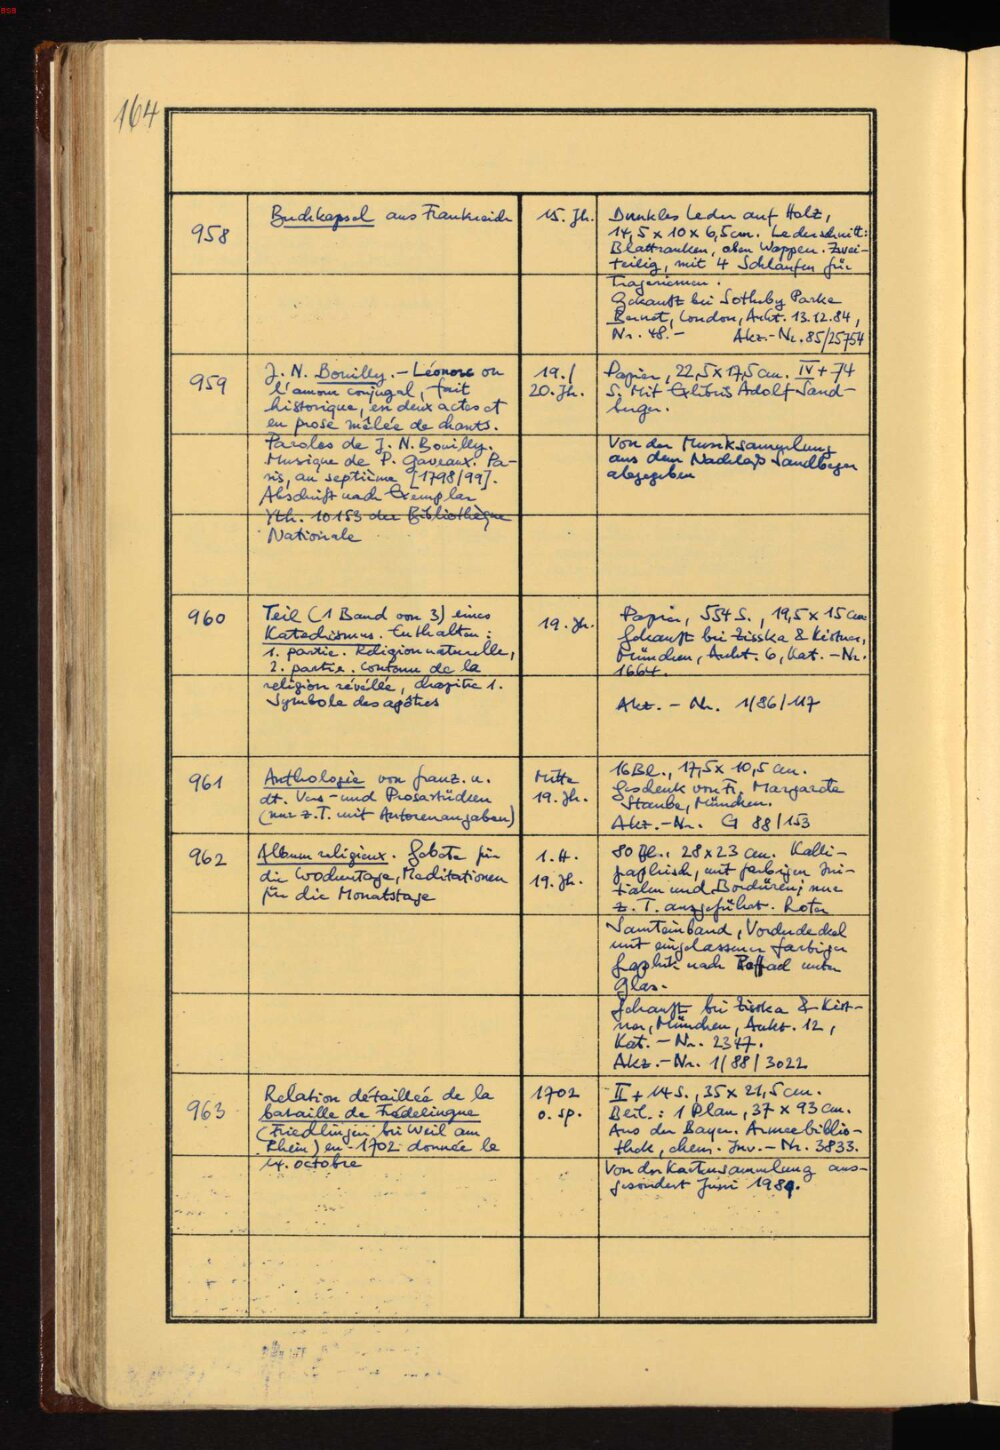 BSB
164
958
Buchkapsel aus Frankreich
15. Jh.
Dunkles Leder auf Holz,
14,5 x 10 x 6,5 cm. Lederschnitt:
Blattranken, oben Wappen. Zwei-
teilig, mit 4 Schlaufen für
Tragriemen.
Gekauft bei Sotheby Parke
Bernet, London, Aukt. 13.12.84,
Nr. 48.- Akz.-Nr. 85/25754
959
J. N. Bouilly. - Léonore ou
l'amour conjugal, fait
historique, en deux actes et
en prose mêlée de chants.
Paroles de J. N. Bouilly.
Musique de P. Gaveaux. Pa-
ris, an septième [1798/99].
Abschrift nach Exemplar
Yth. 10153 der Bibliothèque
Nationale
19./
20. Jh.
Papier, 22,5 x 17,5 cm. IV + 74
S. Mit Exlibris Adolf Sand-
berger.
Von der Musiksammlung
aus dem Nachlaß Sandberger
abgegeben
960
Teil (1 Band von 3) eines
Katechismus. Enthalten:
1. partie. Religion naturelle,
2. partie. Contenu de la
religion révélée, chapitre 1.
Symbole des apôtres
19. Jh.
Papier, 554 S., 19,5 x 15 cm
Gekauft bei Zisska & Kistner,
München, Aukt. 6, Kat.-Nr.
1664.
Akz.-Nr. 1/86/117
961
Anthologie von franz. u.
dt. Vers- und Prosastücken
(nur z.T. mit Autorenangaben)
Mitte
19. Jh.
16 Bl., 17,5 x 10,5 cm.
Geschenk von Fr. Margarete
Staube, München.
Akz.-Nr. G 88/153
962
Album religieux. Gebete für
die Wochentage, Meditationen
für die Monatstage
1. H.
19. Jh.
80 Bl., 28 x 23 cm. Kalli-
graphisch, mit farbigen Ini-
tialen und Bordüren; nur
z. T. ausgeführt. Roter
Samteinband, Vorderdeckel
mit eingelassener farbiger
Graphik nach Raffael unter
Glas.
Gekauft bei Zisska & Kist-
ner, München, Aukt. 12,
Kat.-Nr. 2347.
Akz.-Nr. 1/88/3022
963
Relation détaillée de la
bataille de Fredelingue
(Friedlingen bei Weil am
Rhein) en 1702 donnée le
14. octobre
1702
o. sp.
II + 14 S., 35 x 21,5 cm.
Beil.: 1 Plan, 37 x 93 cm.
Aus der Bayer. Armeebiblio-
thek, ehem. Inv.-Nr. 3833.
Von der Kartensammlung aus-
gesondert Juni 1989.